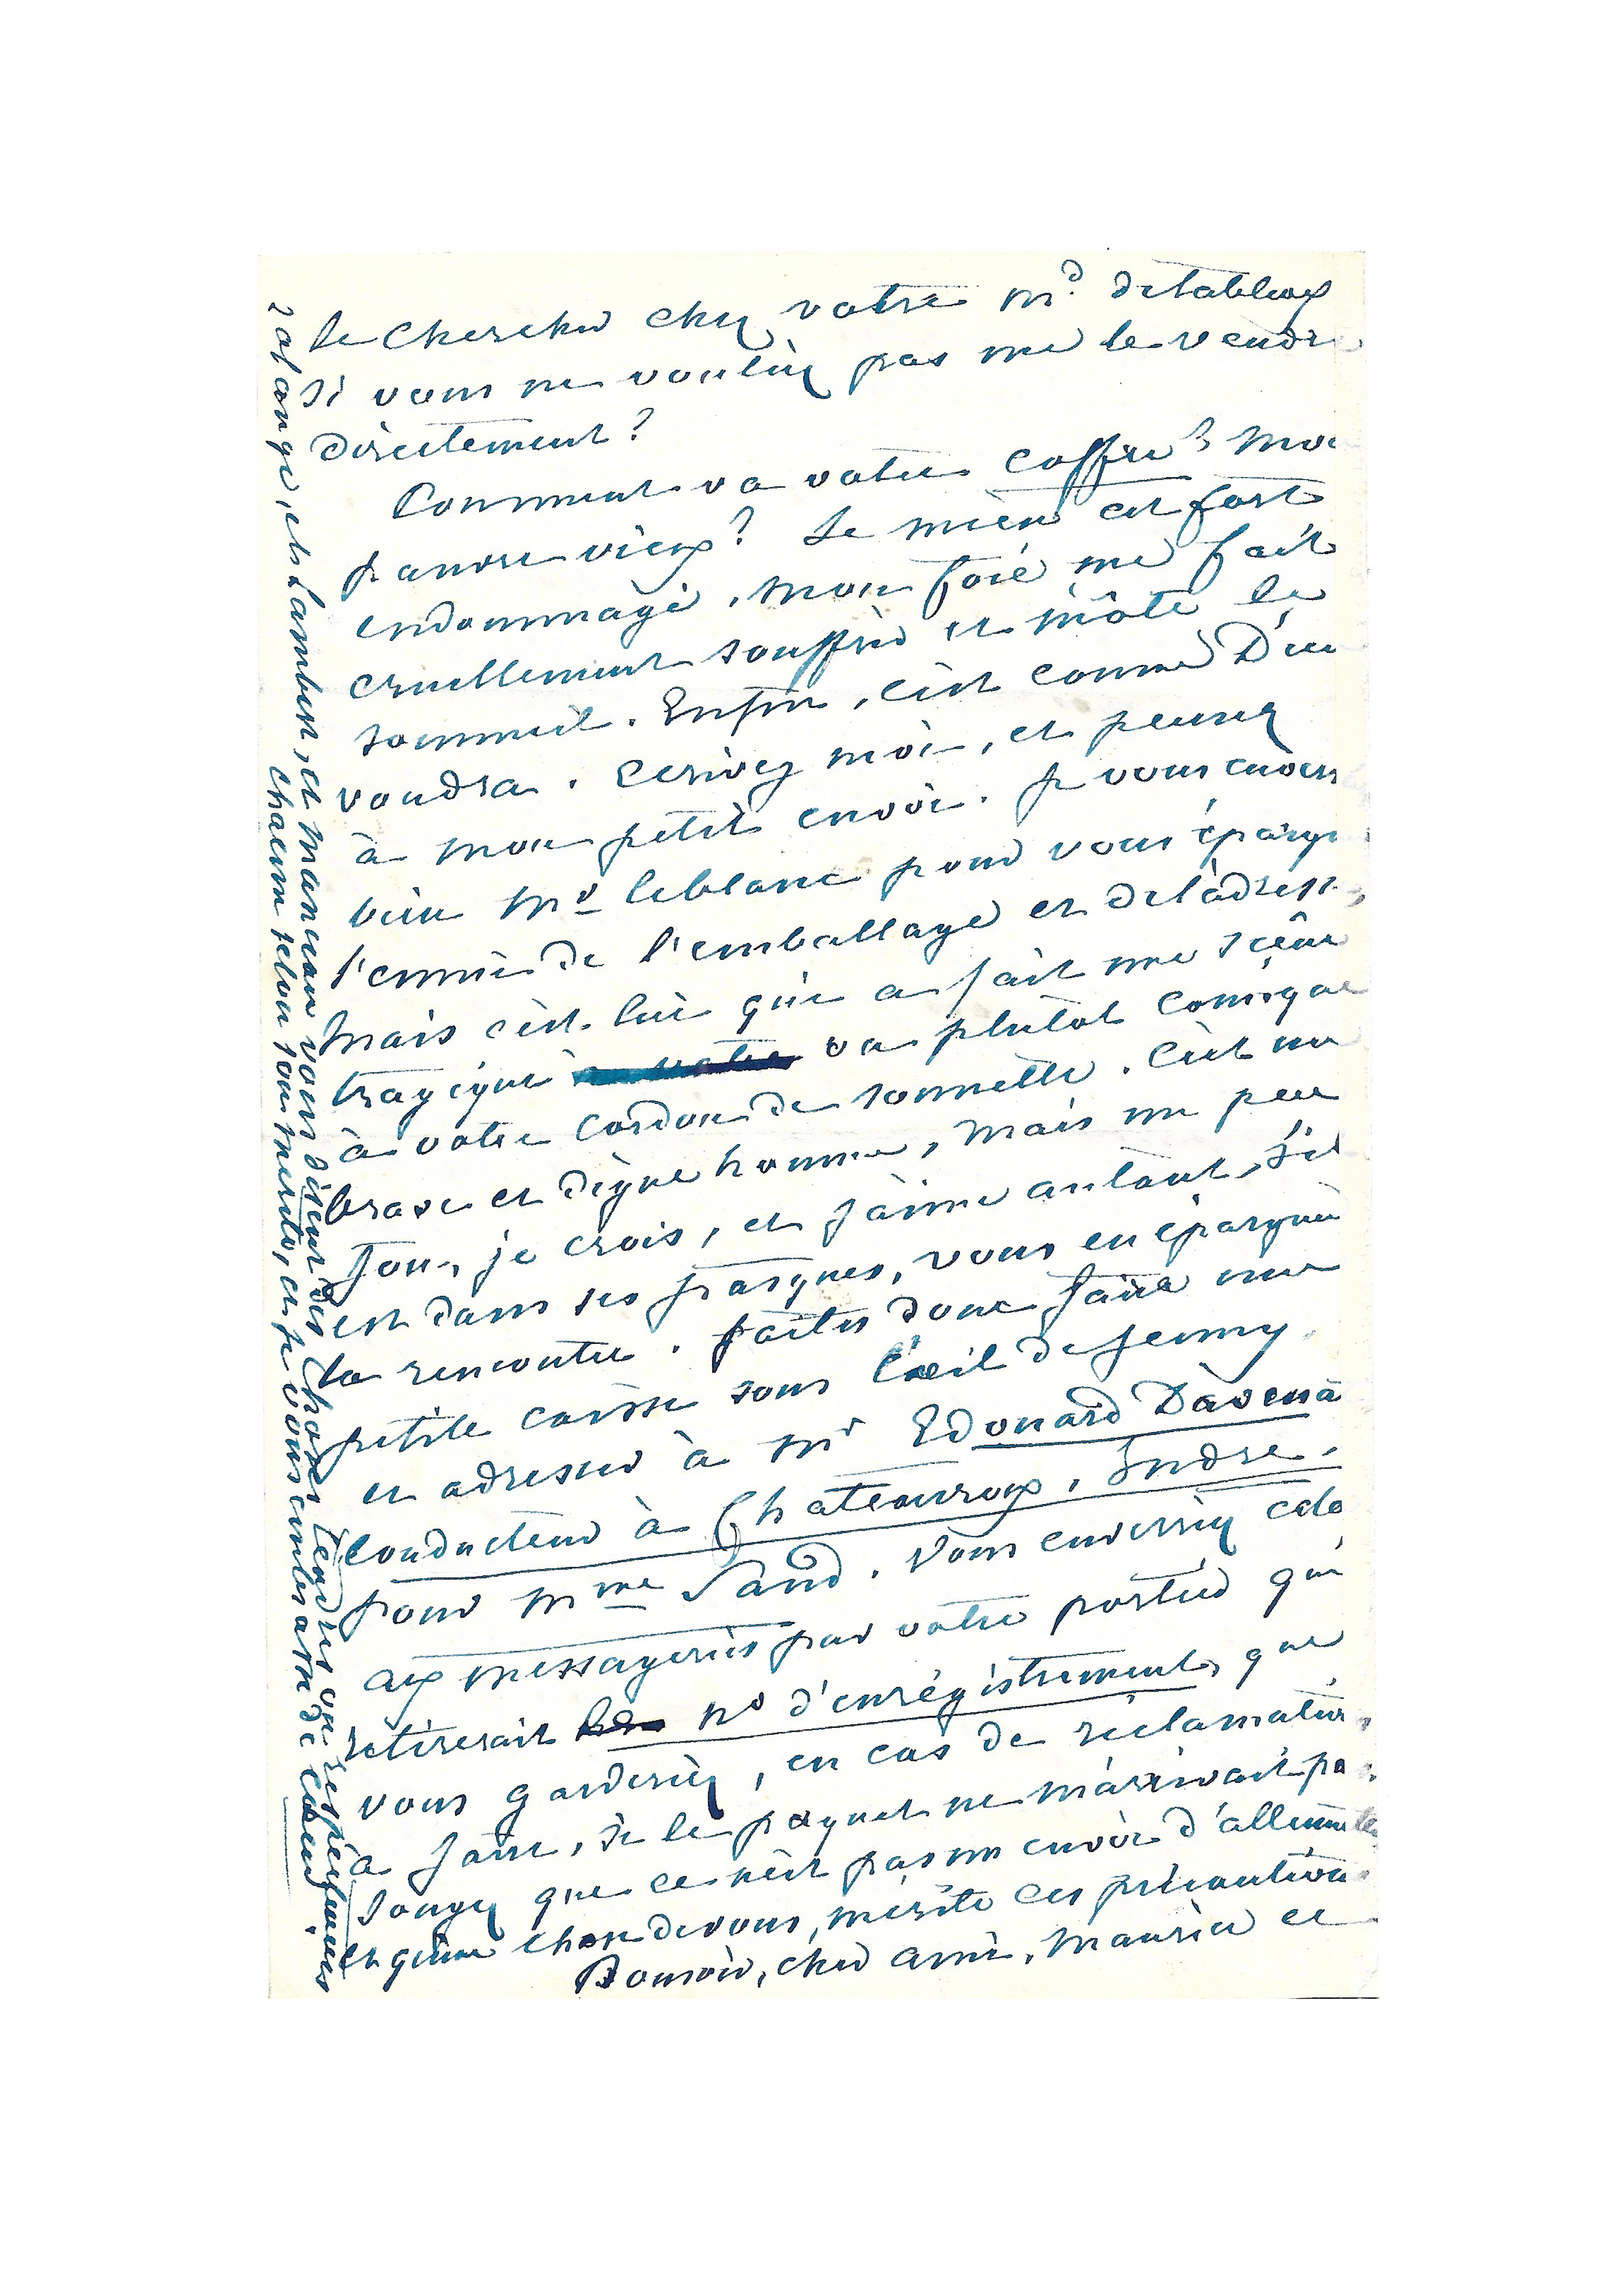 le chercher chez votre md. de tableaux
si vous ne vouliez pas me le vendre
directement?
Comment va votre coffre? mon
pauvre vieux? Le mien est fort
endommagé. mon foie me fait
cruellement souffrir et m'ôte le
sommeil. Enfin, c'est comme Dieu
voudra. Ecrivez moi, et pensez
à mon petit envoi. je vous enverr
bien Mr leblanc pour vous épargn
l'ennui de l'emballage et de l'adresse,
Mais c'est lui qui a fait une scène
tragique ou plutôt comique
à votre cordon de sonnette. C'est un
brave et digne homme, mais un peu
fou, je crois, et j'aime autant, s'il
est dans ses frasques, vous en épargner
la rencontre. faites donc faire une
petite caisse sous l'œil de Jenny.
et adresser à Mr Edouard Davena
Conducteur à Chateauroux, Indre.
pour Mme Sand. Vous enverriez cela
aux messageries par votre portier qui
retirerait no d'enrégistrement, que
vous garderiez, en cas de réclamation
à faire, si le paquet ne m'arrivait pas.
Songez que ce n'est pas un envoi d'allumettes
et qu'une chose de vous, mérite ces précautions
Bonsoir, cher ami, Maurice et
Solange, et Lambert, et Manceau vous disent des choses tendres ou respectueuses
chacun selon son mérite, et je vous embrasse de cœur.